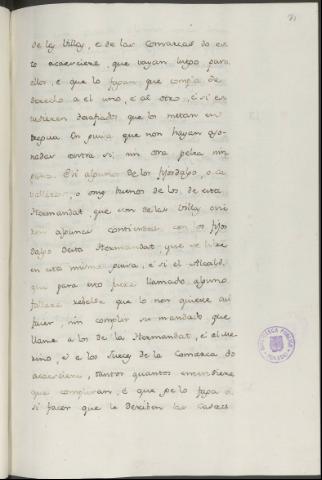 de la Villa, e de las Comarcas do es-
to acaesciere, que vayan luego para
ellos, e que lo fagan, que cumpla de
derecho a el uno, e al otro, e si es-
tuvieren desafiados que los metan en
tregua en guisa que non hayan aso-
nadas entre si, nin otra pelea nin-
guna. E si algunos de los fijosdalgo, o ca-
balleros, o omes buenos de los de esta
Hermandat, que son de las Villas ovie-
ren alguna contienda con los fijos
dalgo desta Hermandat, que se libre
en esta misma guisa, e si el Alcalde
que para esto fuere llamado alguno
fallare rebelde que lo non quiera assi
facer, nin complir su mandado que
llame a los de la Hermandat, e el Me-
rino, e a los Jueces de la Comarca do
acaesciere, tantos quantos entendiere
que compliran, e que ge lo faga
si facer que le derriben las casas